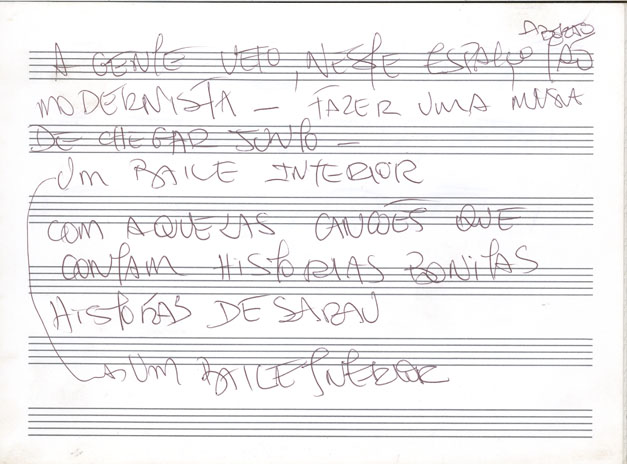 ABERTO
A GENTE VEIO, NESTE ESPAÇO TÃO
MODERNISTA — FAZER UMA MÚSICA
DE CHEGAR JUNTO —
UM BAILE INTERIOR
COM AQUELAS CANÇÕES QUE
CONTAM HISTORIAS BONITAS
HISTORIAS DE SARAU
UM BAILE INTERIOR